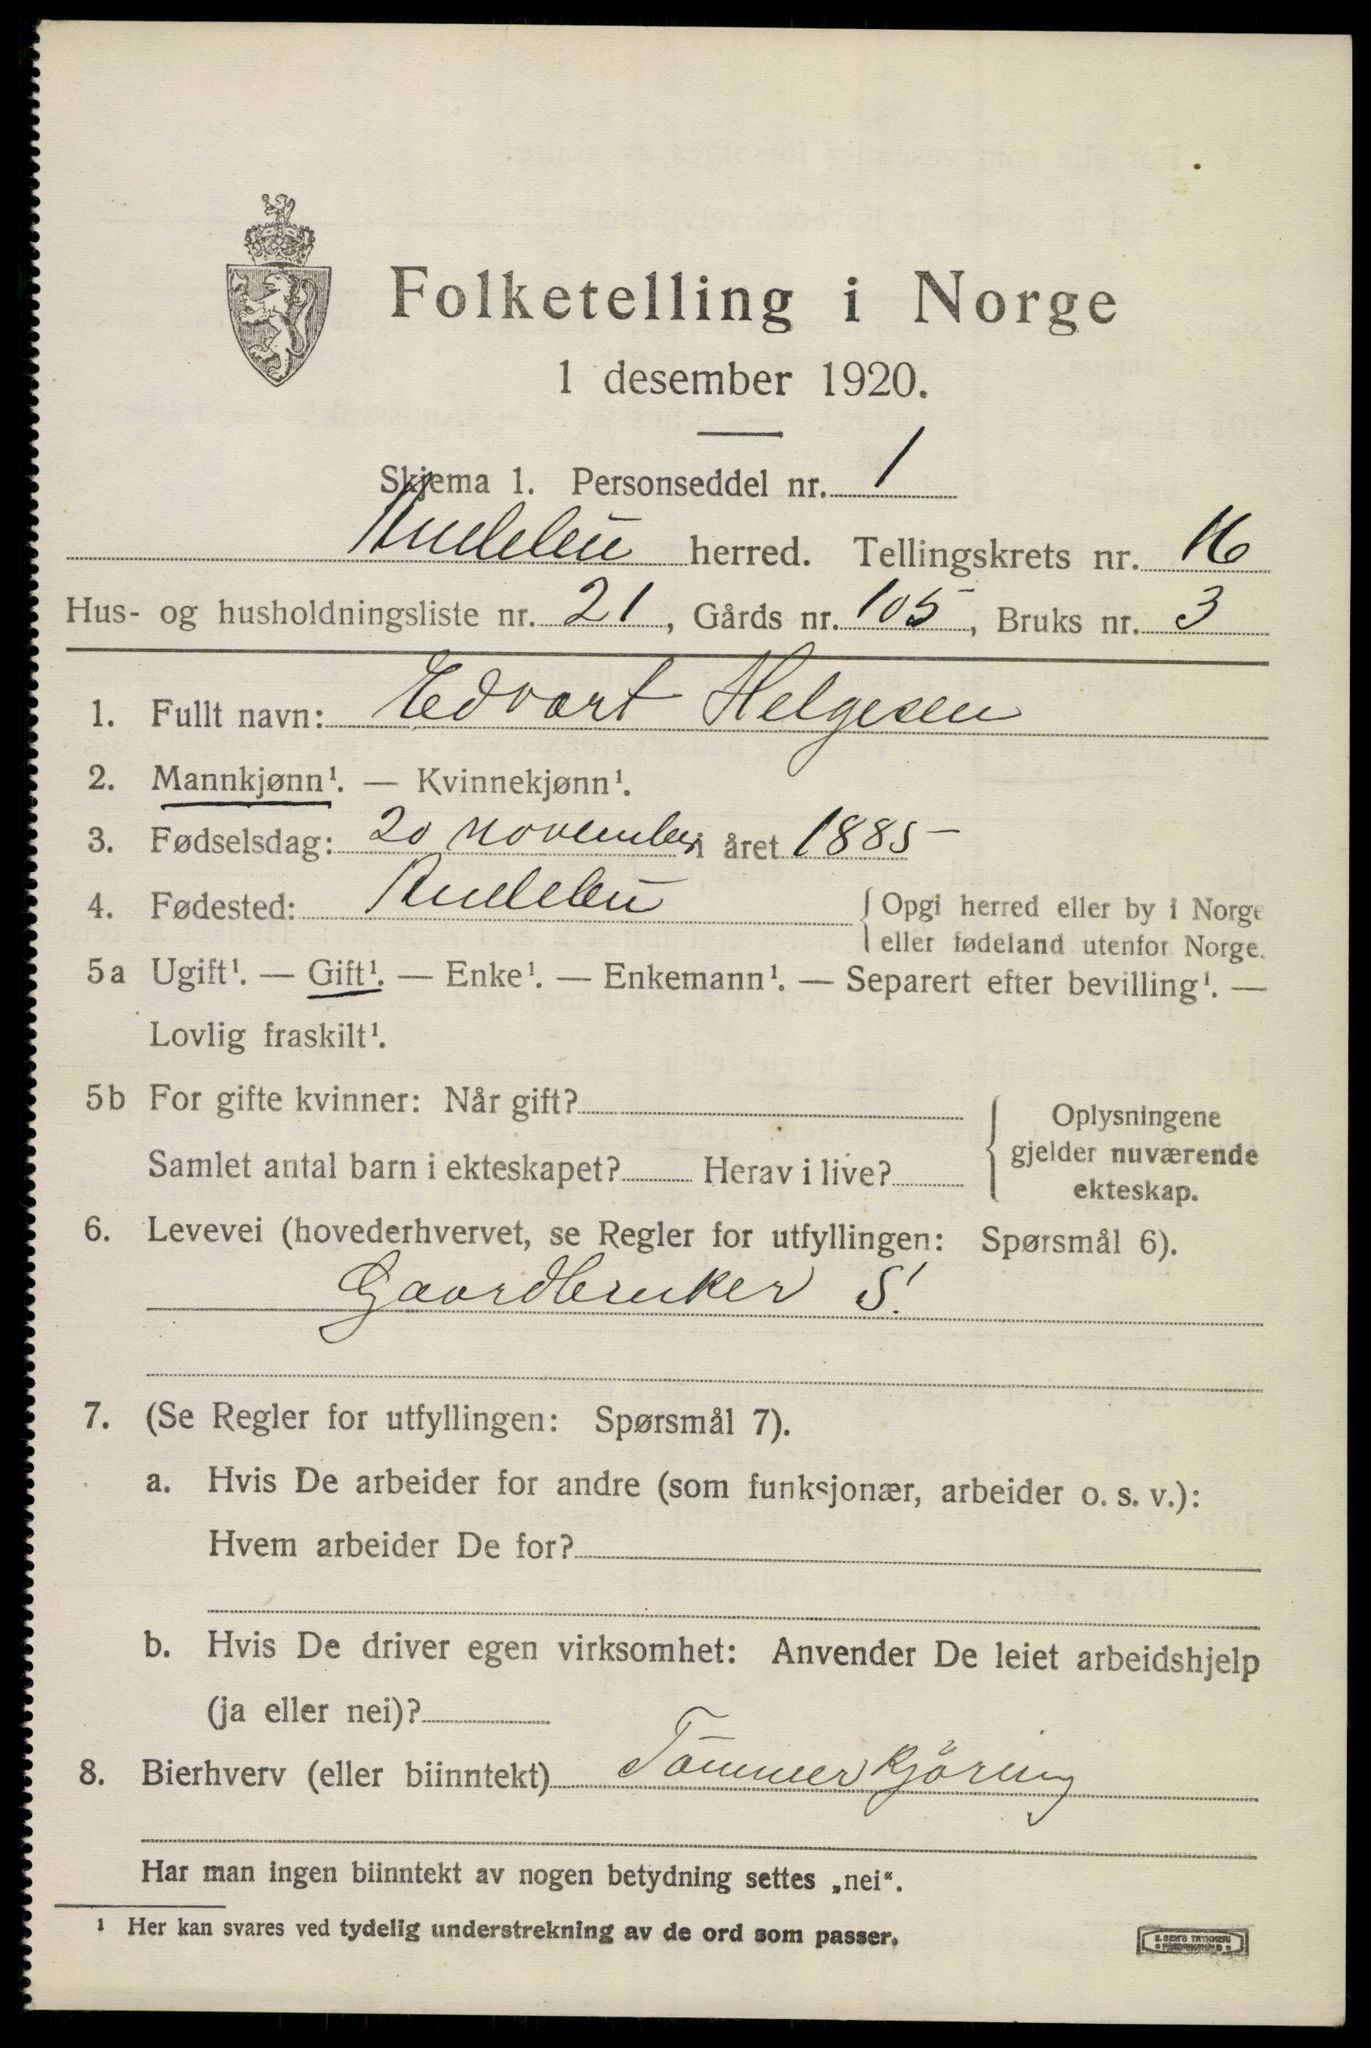 Folketelling i Norge
1 desember 1920.
Skjema 1. Personseddel nr. 1
Andebu herred. Tellingskrets nr. 16
Hus- og husholdningsliste nr. 21, Gårds nr. 105, Bruks nr. 3
1. Fullt navn: Edvart Helgesen
2. Mannkjønn¹. — Kvinnekjønn¹.
3. Fødselsdag: 20 november i året 1885
4. Fødested: Andebu { Opgi herred eller by i Norge
eller fødeland utenfor Norge.
5a Ugift¹. — Gift¹. — Enke¹. — Enkemann¹. — Separert efter bevilling¹. —
Lovlig fraskilt¹.
5b For gifte kvinner: Når gift?
Samlet antal barn i ekteskapet? Herav i live?
{ Oplysningene
gjelder nuværende
ekteskap.
6. Levevei (hovederhvervet, se Regler for utfyllingen: Spørsmål 6).
Gaardbruker S!
7. (Se Regler for utfyllingen: Spørsmål 7).
a. Hvis De arbeider for andre (som funksjonær, arbeider o. s. v.):
Hvem arbeider De for?
b. Hvis De driver egen virksomhet: Anvender De leiet arbeidshjelp
(ja eller nei)?
8. Bierhverv (eller biinntekt) Tömmerkjöring
Har man ingen biinntekt av nogen betydning settes „nei“.
¹ Her kan svares ved tydelig understrekning av de ord som passer.